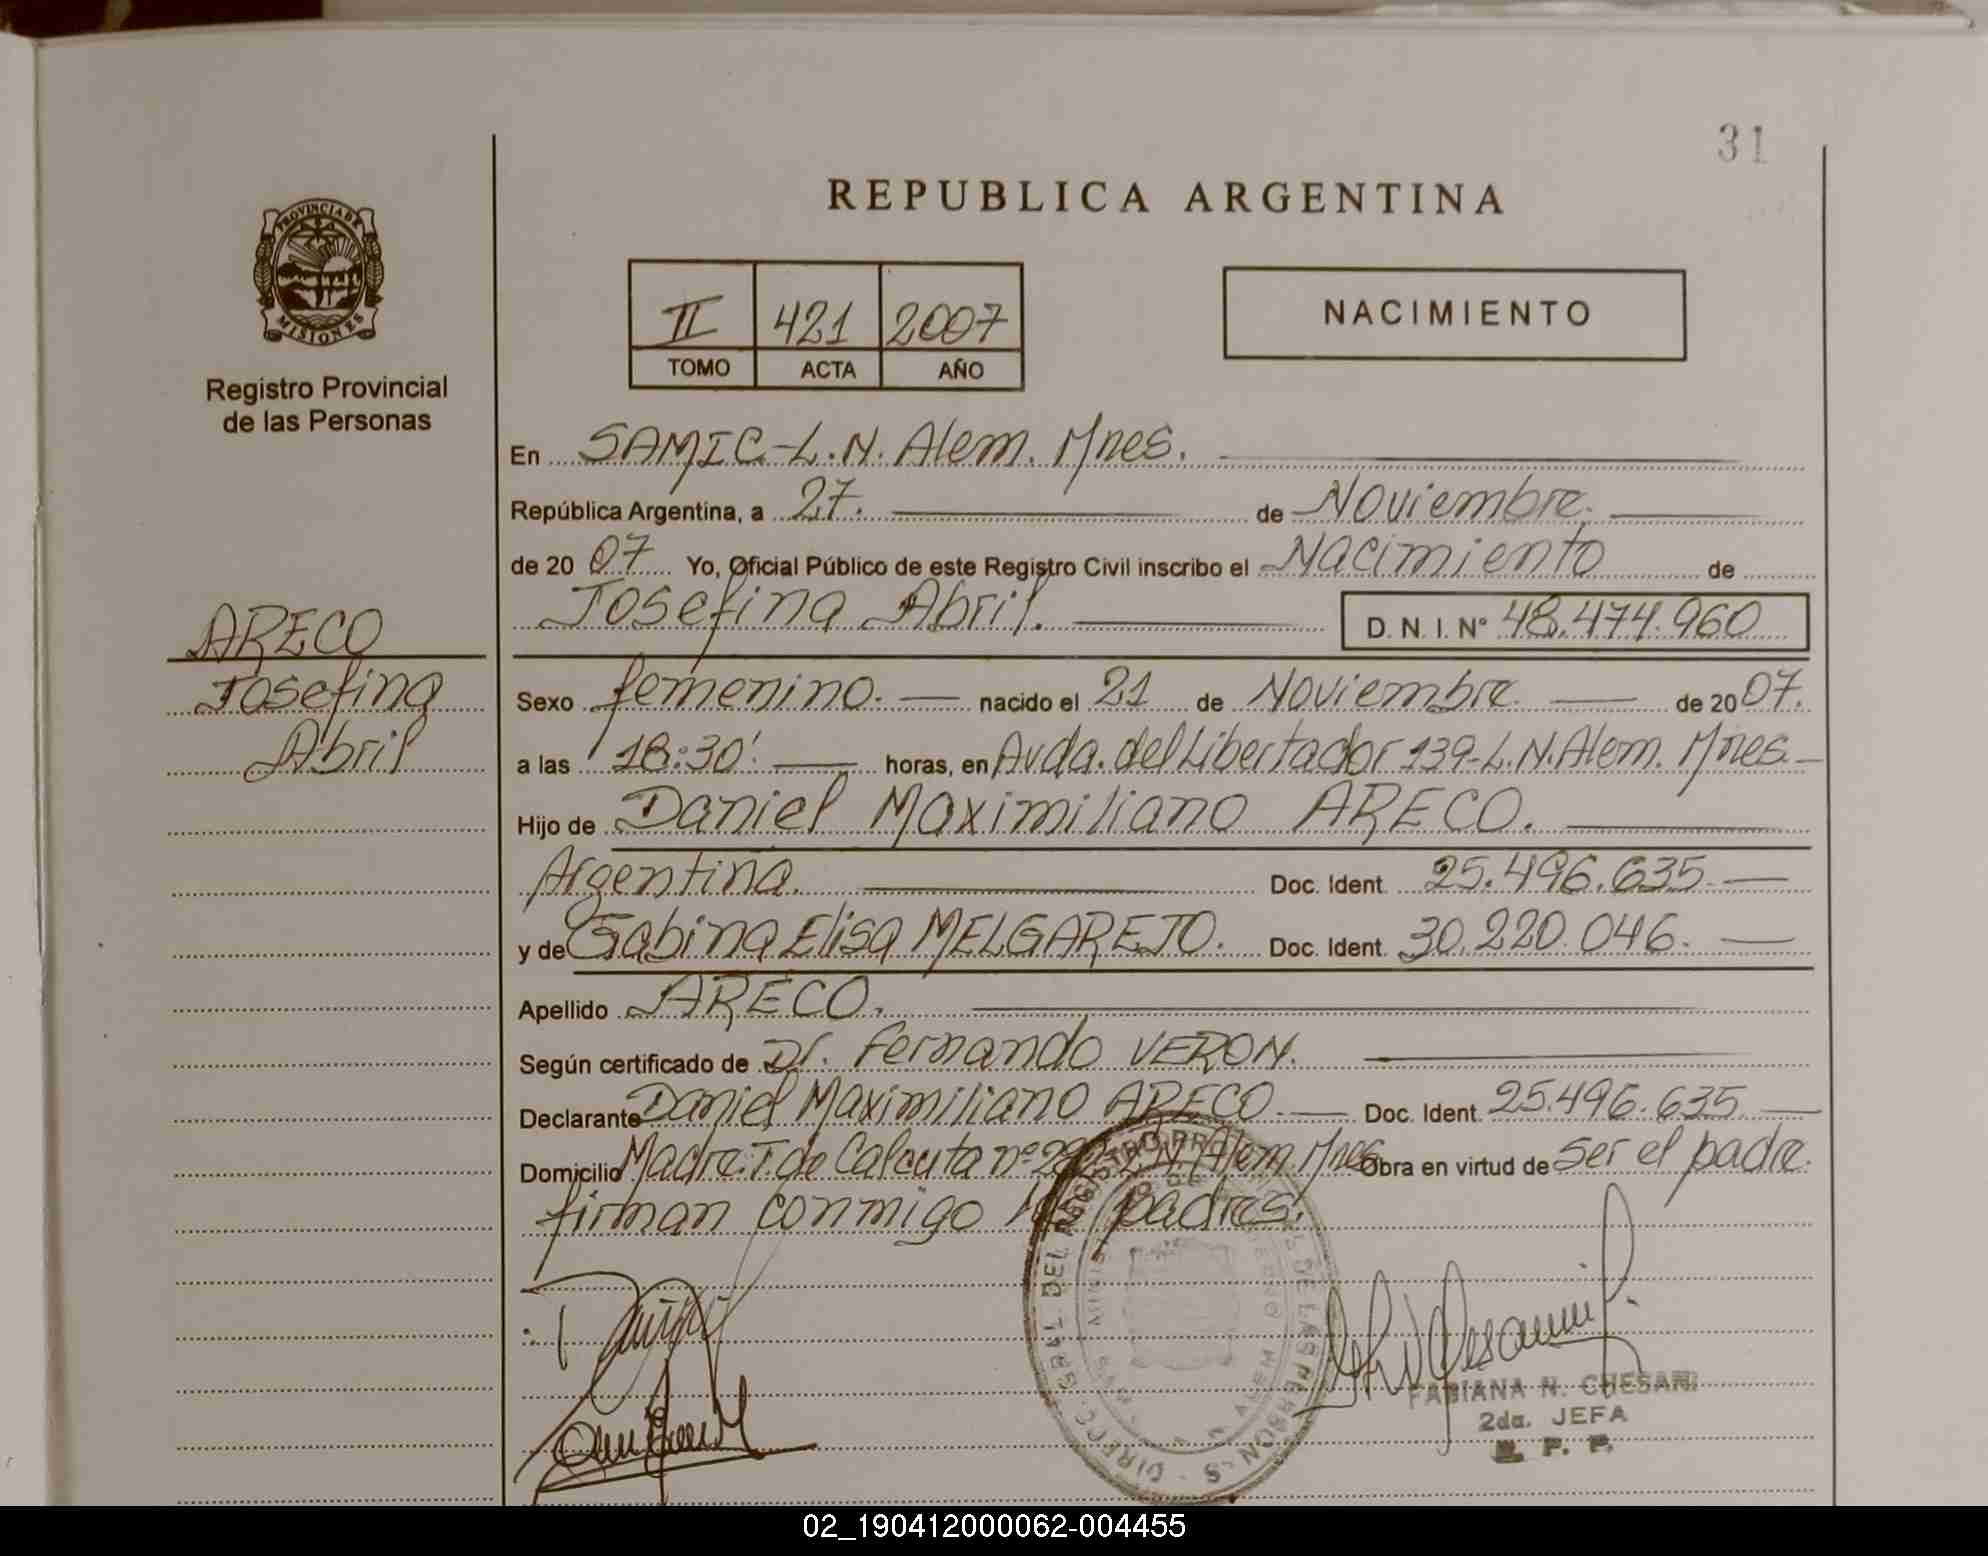 31
REPUBLICA ARGENTINA
PROVINCIA DE
MISIONES
Registro Provincial
de las Personas
II 421 2007
TOMO ACTA AÑO
NACIMIENTO
En SAMIC-L.N. Alem. Mnes.
República Argentina, a 27. de Noviembre.
de 2007 Yo, Oficial Público de este Registro Civil inscribo el Nacimiento de
Josefina Abril. D.N.I. Nº 48.474.960
ARECO
Josefina
Abril
Sexo femenino. nacido el 21 de Noviembre de 2007.
a las 18:30' horas, en Avda. del Libertador 139-L.N.Alem. Mnes.
Hijo de Daniel Maximiliano ARECO.
Argentina. Doc. Ident. 25.496.635.
y de Gabina Elisa MELGAREJO. Doc. Ident. 30.220.046.
Apellido ARECO.
Según certificado de Dr. Fernando VERON.
Declarante Daniel Maximiliano ARECO. Doc. Ident. 25.496.635
Domicilio Madre T. de Calcuta nº L.N. Alem. Mnes. Obra en virtud de ser el padre.
firman conmigo los padres.
DIREC. GRAL. DEL REGISTRO PROV. DE LAS PERSONAS
FABIANA N. CHESANI
2da. JEFA
R. P. P.
02_190412000062-004455